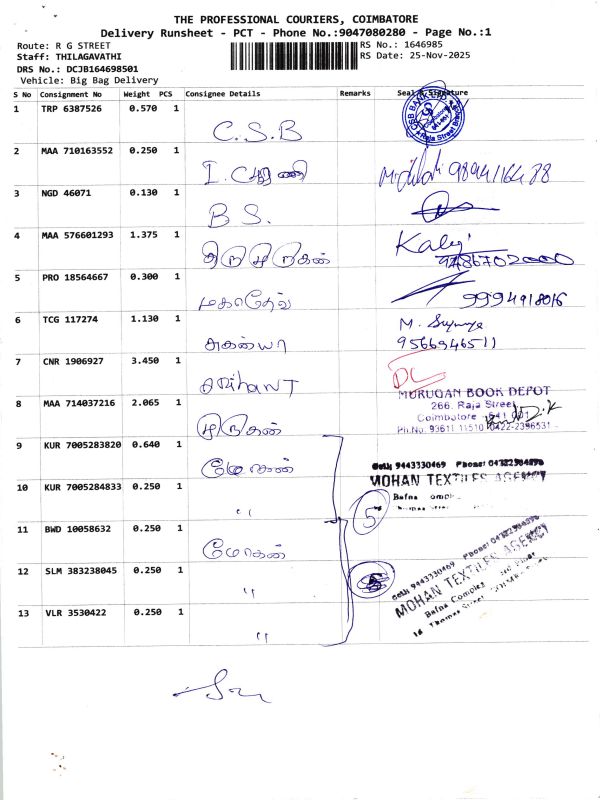 THE PROFESSIONAL COURIERS, COIMBATORE
Delivery Runsheet - PCT - Phone No.:9047080280 - Page No.:1
Route: R G STREET RS No.: 1646985
Staff: THILAGAVATHI RS Date: 25-Nov-2025
DRS No.: DCJB164698501
Vehicle: Big Bag Delivery
S No Consignment No Weight PCS Consignee Details Remarks Seal & Signature
1 TRP 6387526 0.570 1
C.S.B
2 MAA 710163552 0.250 1
3 NGD 46071 0.130 1
B S.
4 MAA 576601293 1.375 1
திருமுருகன் Kalji
9486702000
5 PRO 18564667 0.300 1
மகாதேவ் 9994918016
6 TCG 117274 1.130 1
சுகன்யா 9566946511
7 CNR 1906927 3.450 1
DC
8 MAA 714037216 2.065 1
முருகன்
MURUGAN BOOK DEPOT
266, Raja Street
Coimbatore - 641 001
Ph.No: 93611 11510 0422-2396531
9 KUR 7005283820 0.640 1
மோகன்
10 KUR 7005284833 0.250 1
"
Cell: 9443330469 Phone: 04222504896
MOHAN TEXTILES AGENCY
Bafna Complex
5
11 BWD 10058632 0.250 1
மோகன்
12 SLM 383238045 0.250 1
"
13 VLR 3530422 0.250 1
"
Cell: 9443330469
MOHAN TEXTILES AGENCY
Bafna Complex
16 Thomas Street